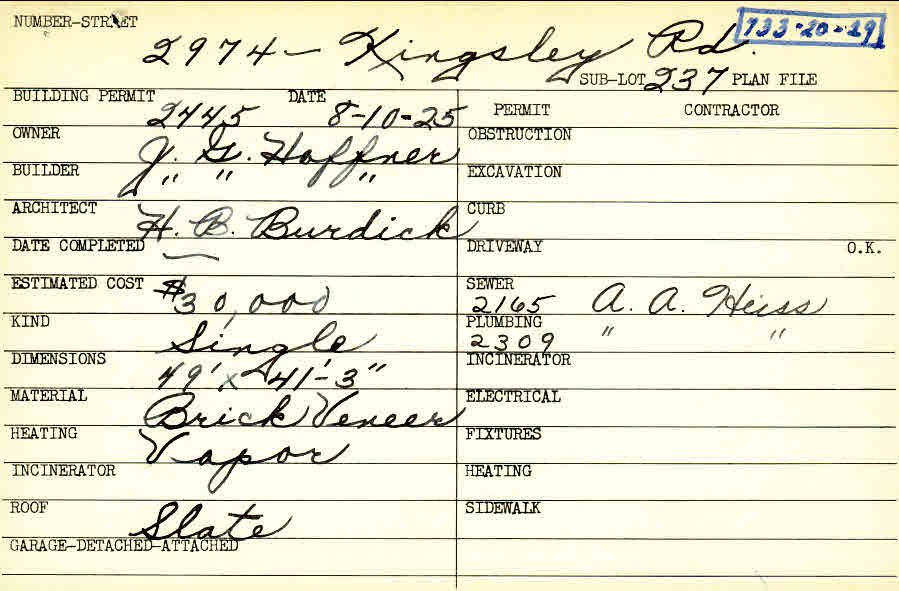 NUMBER-STREET
2974 - Kingsley Rd. 733-20-29
SUB-LOT 237 PLAN FILE
BUILDING PERMIT 2445 DATE 8-10-25
PERMIT CONTRACTOR
OWNER J. G. Haffner
OBSTRUCTION
BUILDER " " "
EXCAVATION
ARCHITECT H. B. Burdick
CURB
DATE COMPLETED —
DRIVEWAY O.K.
ESTIMATED COST $30,000
SEWER 2165 A. A. Heiss
KIND Single
PLUMBING 2309 " "
DIMENSIONS 49' x 41'-3"
INCINERATOR
MATERIAL Brick Veneer
ELECTRICAL
HEATING Vapor
FIXTURES
INCINERATOR
HEATING
ROOF Slate
SIDEWALK
GARAGE-DETACHED-ATTACHED